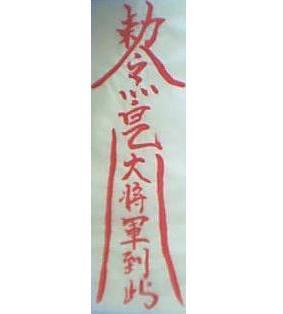 勅令大將軍到此